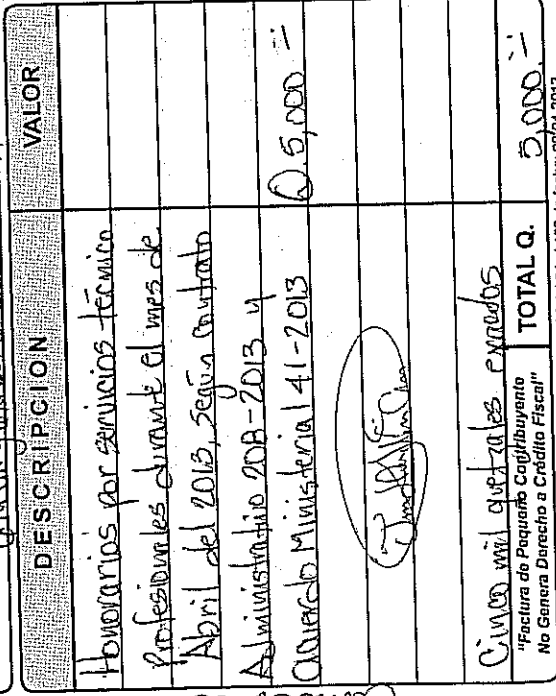 DESCRIPCION VALOR
Honorarios por servicios técnico
Profesionales durante el mes de
Abril del 2013, según contrato
Administrativo 208-2013 y
acuerdo Ministerial 41-2013 Q.5,000.-
Cinco mil quetzales exactos
"Factura de Pequeño Contribuyente
No Genera Derecho a Crédito Fiscal"
TOTAL Q. 5,000.-